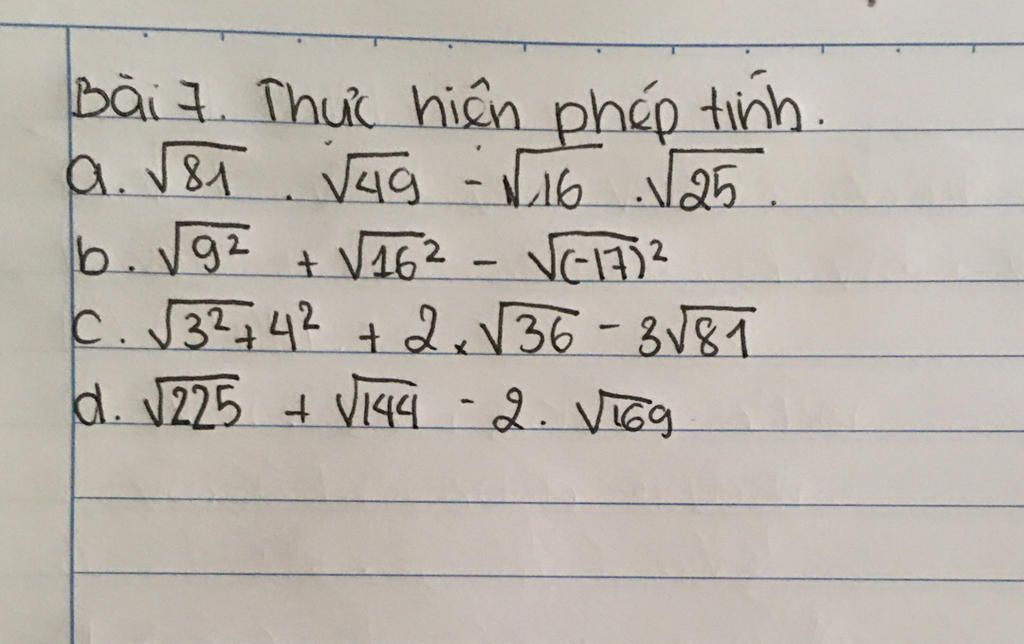 Bài 7. Thực hiện phép tính.
a. √81 . √49 - √16 . √25.
b. √9² + √16² - √(-17)²
c. √3²+4² + 2.√36 - 3√81
d. √225 + √144 - 2. √169